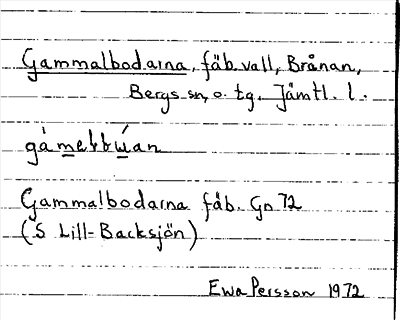 Gammalbodarna, fäb.vall, Brånan,
Bergs sn, o. tg. Jämtl. l.
gàmelbúan
Gammalbodarna fäb. Gn 72
(S Lill-Backsjön)
Ewa Persson 1972